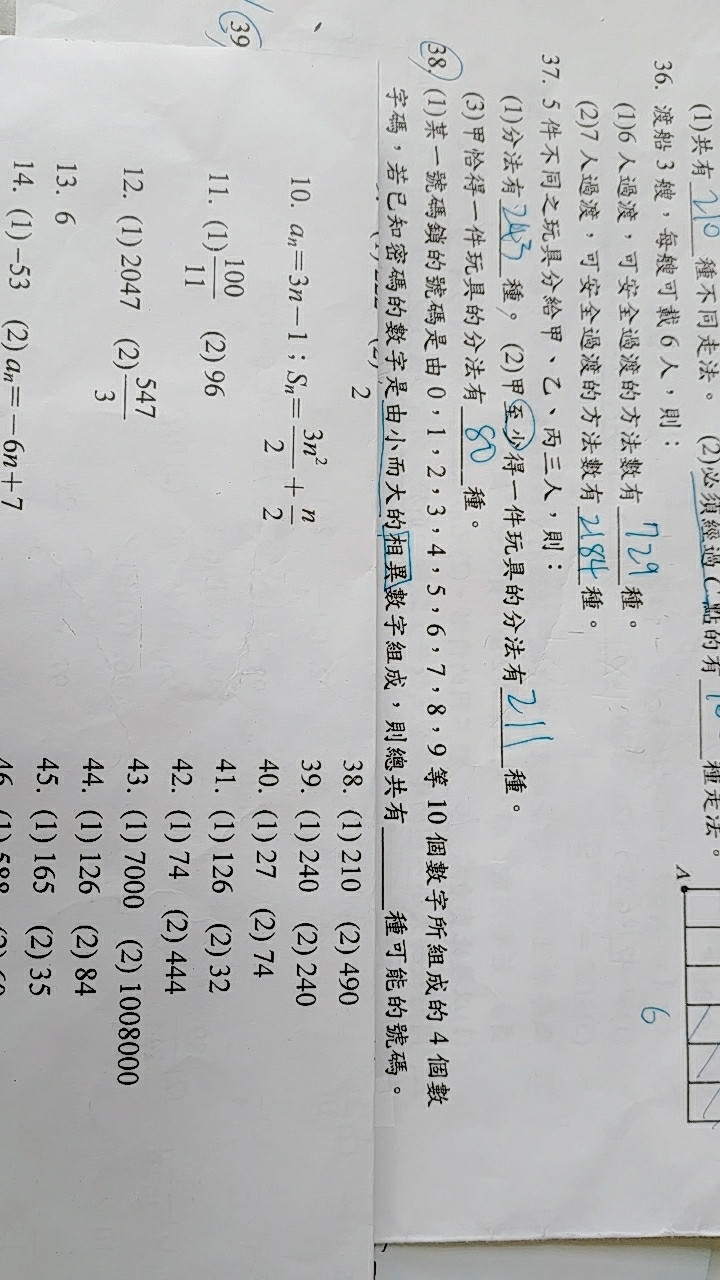 (1)共有 210 種不同走法。 (2)必須經過C點的有 種走法。
A
6
36. 渡船 3 艘，每艘可載 6 人，則：
(1)6 人過渡，可安全過渡的方法數有 729 種。
(2)7 人過渡，可安全過渡的方法數有 2184 種。
37. 5 件不同之玩具分給甲、乙、丙三人，則：
(1)分法有 243 種。 (2)甲至少得一件玩具的分法有 211 種。
(3)甲恰得一件玩具的分法有 80 種。
38. (1)某一號碼鎖的號碼是由 0，1，2，3，4，5，6，7，8，9 等 10 個數字所組成的 4 個數
字碼，若已知密碼的數字是由小而大的相異數字組成，則總共有 種可能的號碼。
39
2
10. aₙ=3n−1；Sₙ=3n²/2+n/2
11. (1)100/11 (2)96
12. (1)2047 (2)547/3
13. 6
14. (1)−53 (2)aₙ=−6n+7
38. (1)210 (2)490
39. (1)240 (2)240
40. (1)27 (2)74
41. (1)126 (2)32
42. (1)74 (2)444
43. (1)7000 (2)1008000
44. (1)126 (2)84
45. (1)165 (2)35